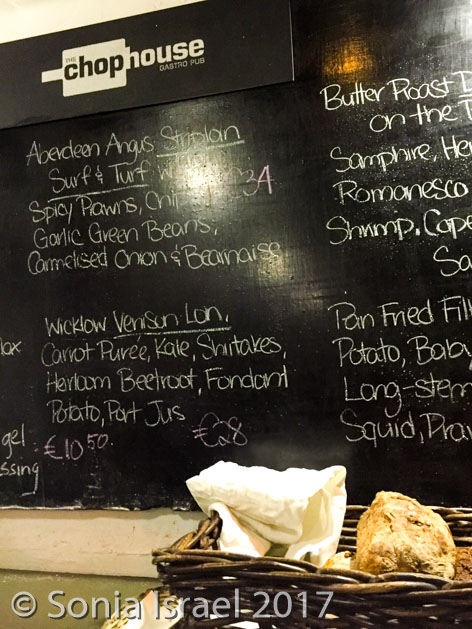 THE
chophouse
GASTRO PUB
Aberdeen Angus Striploin
Surf & Turf
Spicy Prawns, 34
Garlic Green Beans,
Carmelised Onion & Bearnaise
Wicklow Venison Loin,
Carrot Purée, Kale, Shiitakes,
Heirloom Beetroot, Fondant
Potato, Port Jus
€28
€10.50
gel
ssing
Butter Roast
on the
Samphire,
Romanesco
Shrimp,
Pan Fried
Potato, Baby
Long-stem
Squid,
© Sonia Israel 2017